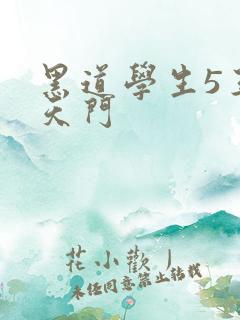 黑道學生5
天門
花小歡丿
未經同意禁止轉載